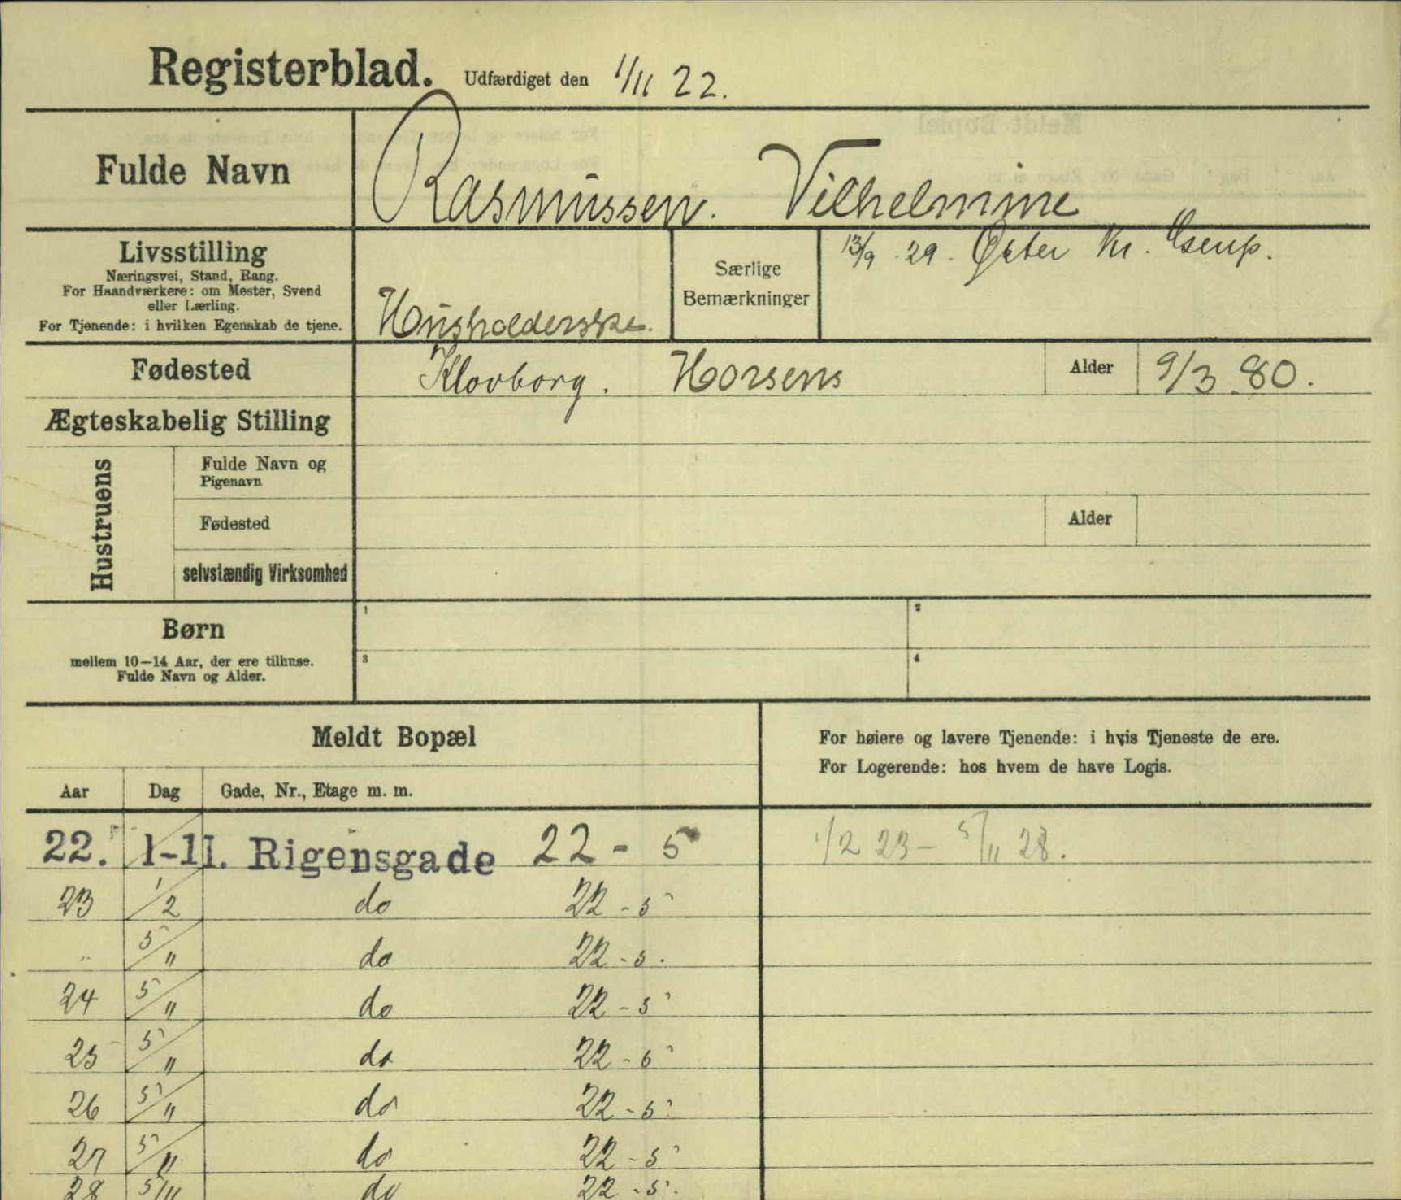 Registerblad. Udfærdiget den 1/11 22.
Fulde Navn Rasmussen. Vilhelmine
Livsstilling
Næringsvei, Stand, Rang.
For Haandværkere: om Mester, Svend
eller Lærling.
For Tjenende: i hvilken Egenskab de tjene.
Husholderske.
Særlige
Bemærkninger
13/9 29. Øster Kr. Eserup.
Fødested Klovborg. Horsens Alder 9/3 80.
Ægteskabelig Stilling
Hustruens
Fulde Navn og
Pigenavn
Fødested Alder
selvstændig Virksomhed
Børn
mellem 10-14 Aar, der ere tilhuse.
Fulde Navn og Alder.
1 2
3 4
Meldt Bopæl
For høiere og lavere Tjenende: i hvis Tjeneste de ere.
For Logerende: hos hvem de have Logis.
Aar Dag Gade, Nr., Etage m. m.
22. 1-11. Rigensgade 22 - 5 1/2 23 - 5/11 28.
23 1/2 do 22 - 5
" 5/11 do 22 - 5.
24 5/11 do 22 - 5
25 5/11 do 22 - 5
26 5/11 do 22 - 5
27 5/11 do 22 - 5
28 5/11 do 22 - 5.